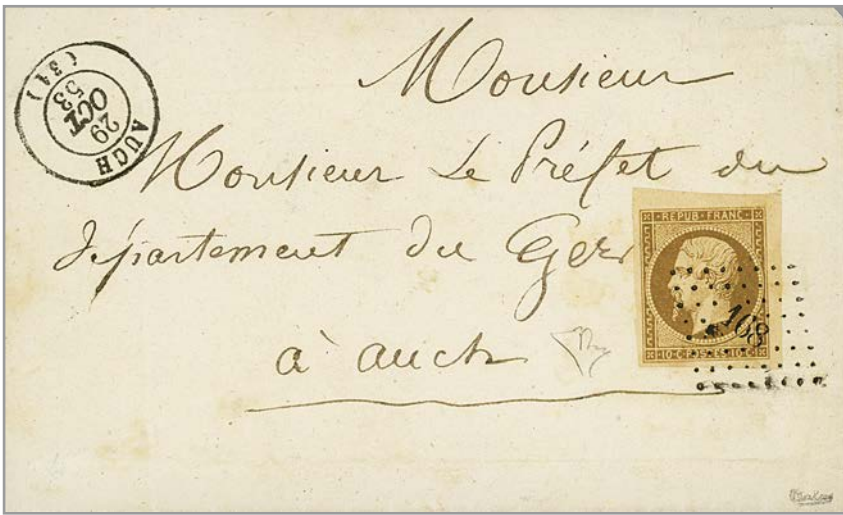 AUCH
29
OCT
53
(31)
Monsieur
Monsieur Le Préfet du
département du Gers
à auch
REPUB·FRANC·
10·C·POSTES·10·C
168